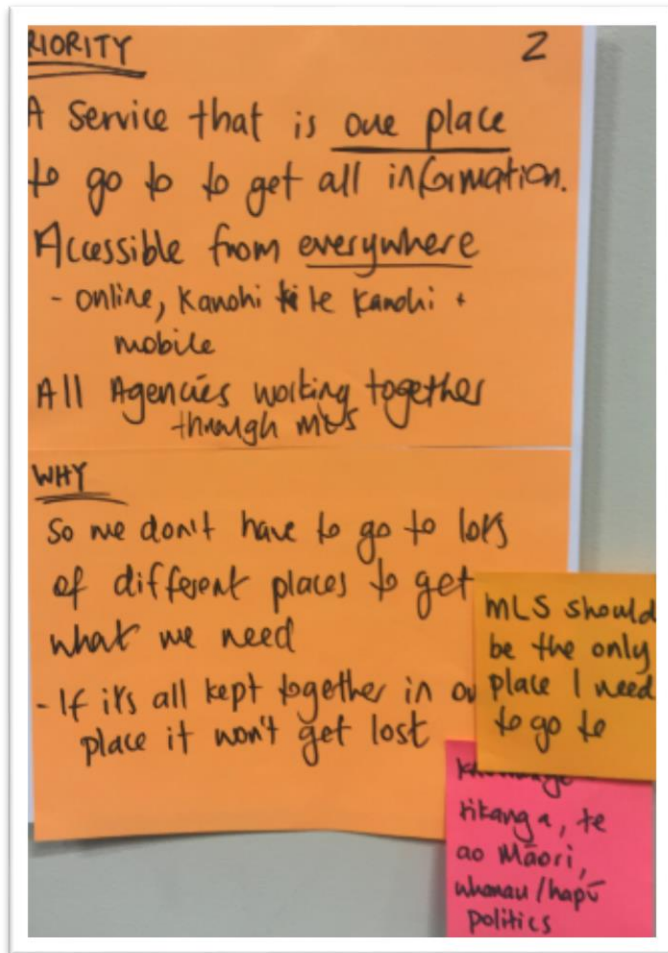 RIORITY 2
A Service that is one place
to go to to get all information.
Accessible from everywhere
- online, Kanohi ki te Kanohi +
mobile
All Agencies working together
through MLS
WHY
So we don't have to go to lots
of different places to get
what we need
- If it's all kept together in
place it won't get lost
MLS should
be the only
place I need
to go to
tikanga, te
ao Māori,
whanau/hapū
politics